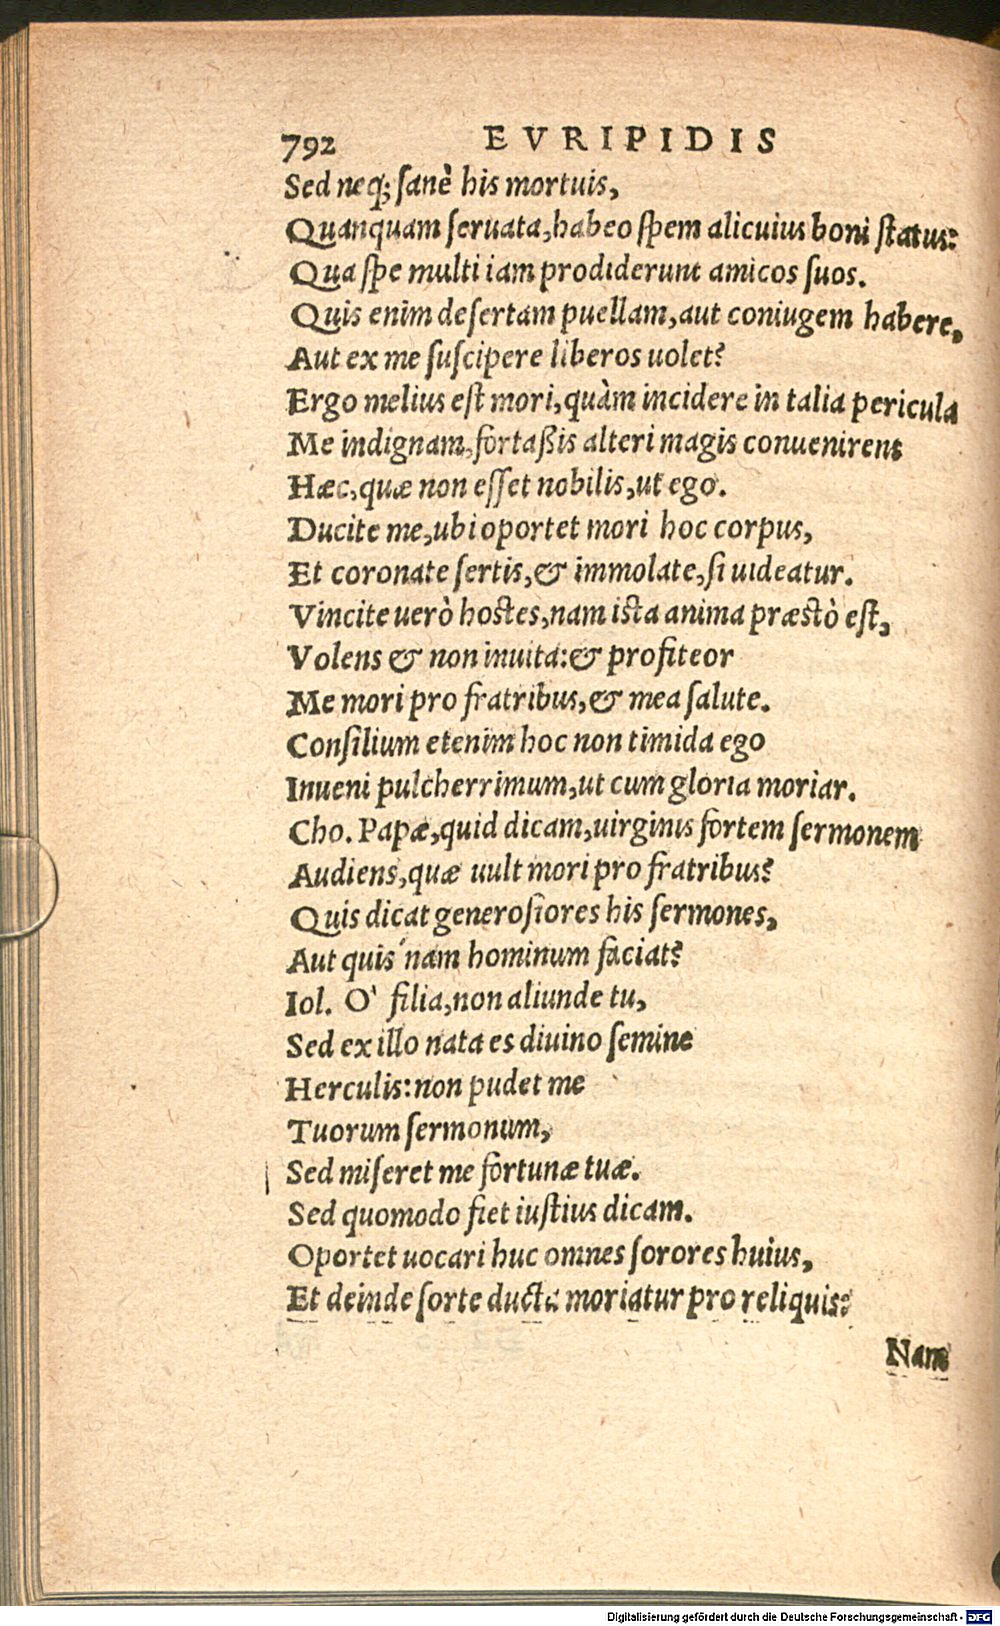 792 EVRIPIDIS
Sed neq; sanè his mortuis,
Quanquam seruata, habeo spem alicuius boni status:
Qua spe multi iam prodiderunt amicos suos.
Quis enim desertam puellam, aut coniugem habere,
Aut ex me suscipere liberos uolet?
Ergo melius est mori, quàm incidere in talia pericula
Me indignam, fortaßis alteri magis conuenirent
Hæc, quæ non esset nobilis, ut ego.
Ducite me, ubi oportet mori hoc corpus,
Et coronate sertis, & immolate, si uideatur.
Vincite uerò hostes, nam ista anima præstò est,
Volens & non inuita: & profiteor
Me mori pro fratribus, & mea salute.
Consilium etenim hoc non timida ego
Inueni pulcherrimum, ut cum gloria moriar.
Cho. Papæ, quid dicam, uirginis fortem sermonem
Audiens, quæ uult mori pro fratribus?
Quis dicat generosiores his sermones,
Aut quis´nam hominum faciat?
Iol. O` filia, non aliunde tu,
Sed ex illo nata es diuino semine
Herculis: non pudet me
Tuorum sermonum,
Sed miseret me fortunæ tuæ.
Sed quomodo fiet iustius dicam.
Oportet uocari huc omnes sorores huius,
Et deinde sorte ducta moriatur pro reliquis:
Nam
Digitalisierung gefördert durch die Deutsche Forschungsgemeinschaft - DFG